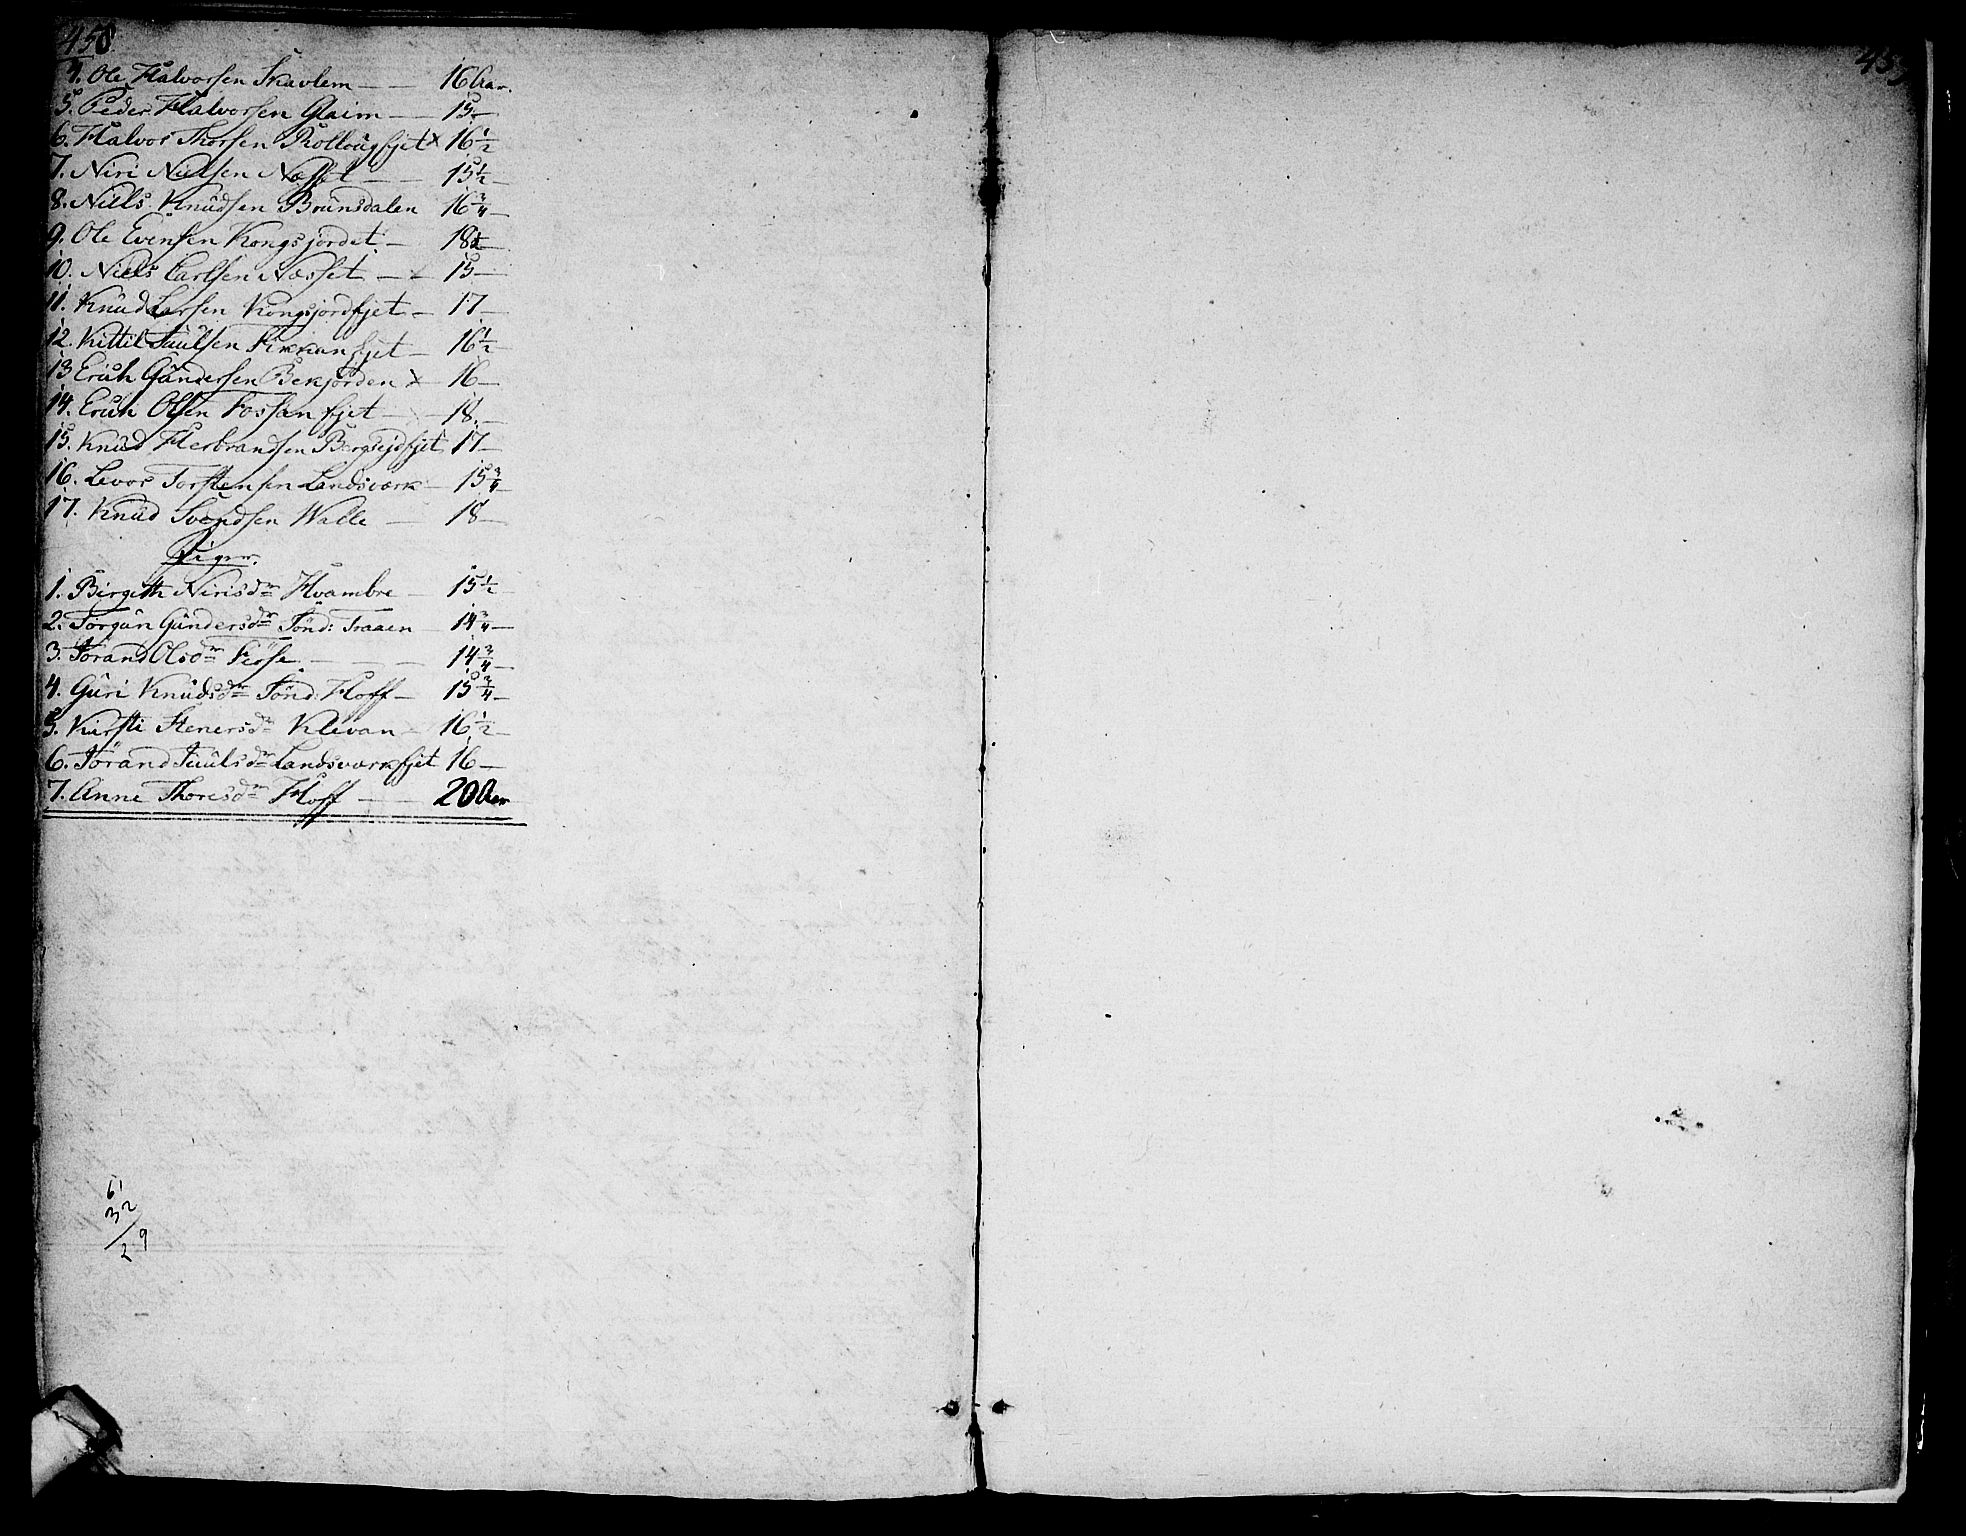 458
4. Ole Halvorsen Skavlem — — 16 Aar.
5. Peder Halvorsen Glaim — 15 —
6. Halvor Thorsen Rollougfjet x 16 1/2
7. Niri Nielsen Næsset — — 15 1/2 —
8. Niels Knudsen Brunsdalen 16 3/4 —
9. Ole Evensen Kongsjordet — 18 1/2 —
10. Niels Carlsen Næsset — x 15 —
11. Knud Larsen Kongsjordfjet — 17 —
12. Kittil Juulsen Fikkanfjet — 16 1/2 —
13 Erich Gundersen Bekjorden x 16 —
14. Erich Olsen Fossanfjet — 18. —
15. Knud Herbrandsen Bergsejdfjet 17 —
16. Levor Torstensen Landsværk — 15 3/4 —
17. Knud Svendsen Walle — 18 —
Piger.
1. Birgith Nirisdr Hvambre — 15 1/2 —
2. Torgun Gundersdr Sönd: Traaen — 14 3/4 —
3. Jörand Olsdr — — 14 3/4 —
4. Guri Knudsdr Sönd: Hoff — 15 3/4 —
5. Kirsti Stenersdr Klevan — 16 1/2 —
6. Jörand Juulsdr Landsværkfjet 16 —
7. Anne Thoresdr Hoff — — 20 Aar
61
32
29